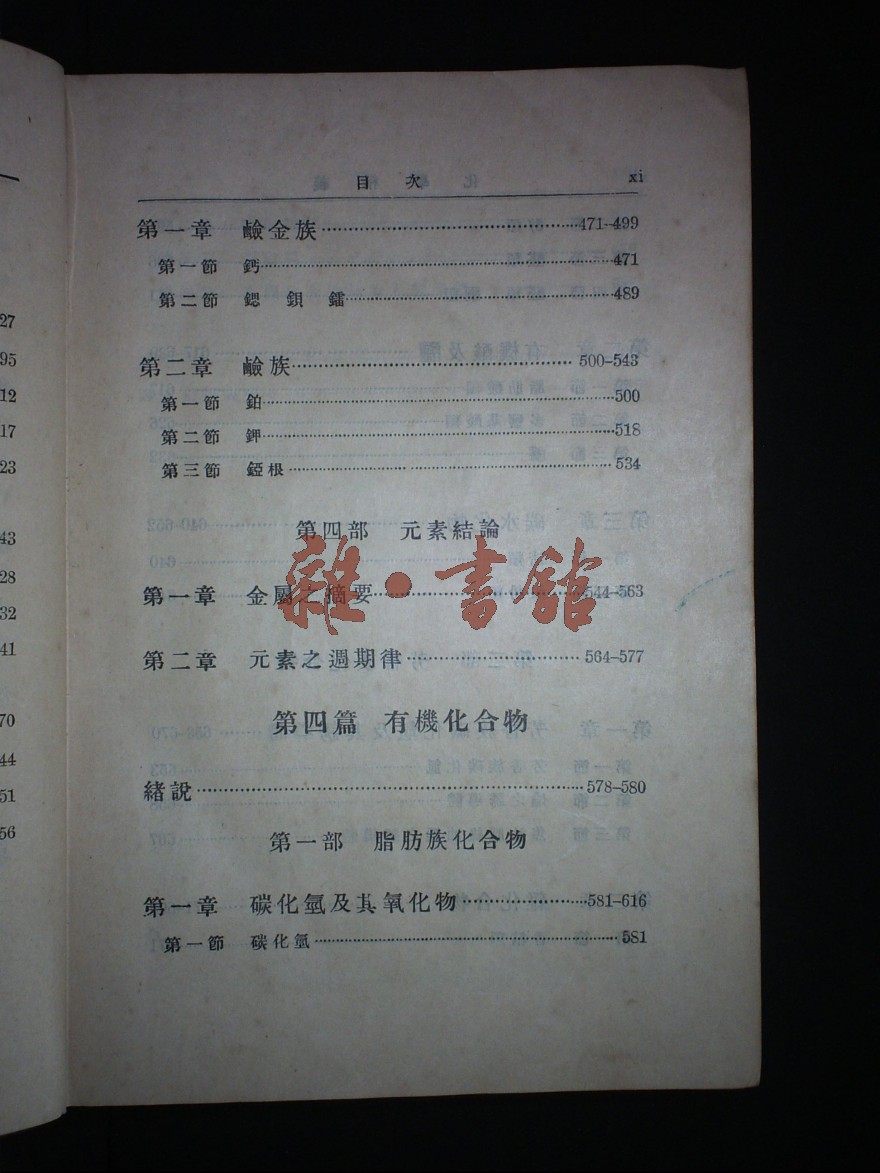 目次 xi
第一章 鹼金族 471–499
第一節 鈣 471
第二節 鍶 鋇 鐳 489
第二章 鹼族 500–543
第一節 鈉 500
第二節 鉀 518
第三節 錏根 534
第四部 元素結論
第一章 金屬之摘要 544–563
第二章 元素之週期律 564–577
第四篇 有機化合物
緒說 578–580
第一部 脂肪族化合物
第一章 碳化氫及其氧化物 581–616
第一節 碳化氫 581
雜·書館
27
95
12
17
23
43
28
32
41
70
44
51
56